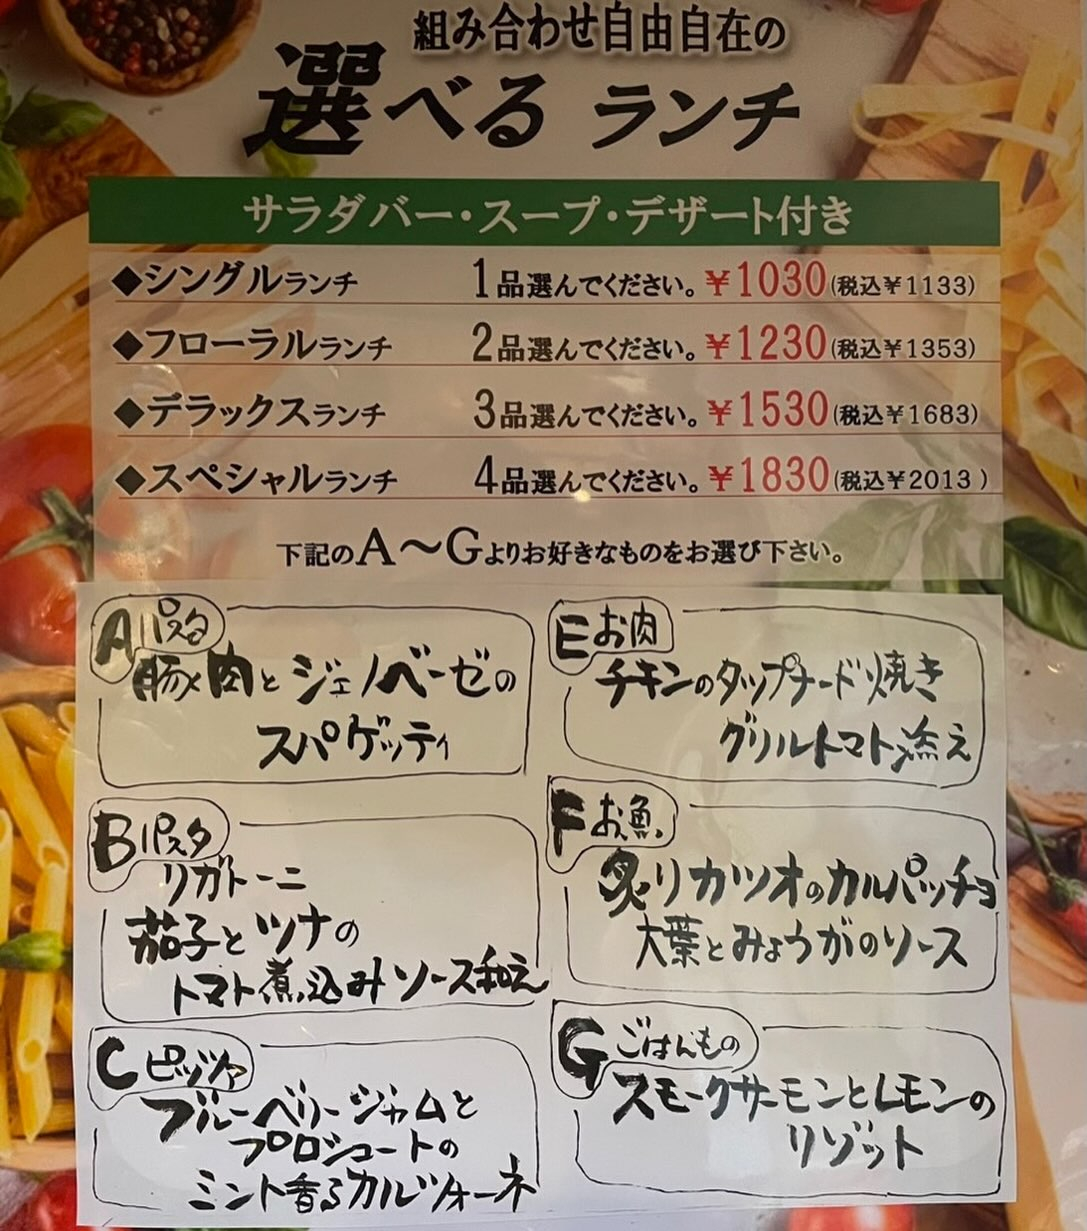 組み合わせ自由自在の
選べるランチ
サラダバー・スープ・デザート付き
◆シングルランチ 1品選んでください。￥1030(税込￥1133)
◆フローラルランチ 2品選んでください。￥1230(税込￥1353)
◆デラックスランチ 3品選んでください。￥1530(税込￥1683)
◆スペシャルランチ 4品選んでください。￥1830(税込￥2013 )
下記のA～Gよりお好きなものをお選び下さい。
A パスタ
豚肉とジェノベーゼの
スパゲッティ
B パスタ
リガトーニ
茄子とツナの
トマト煮込みソース和え
C ピッツァ
ブルーベリージャムと
プロシュートの
ミント香るカルツォーネ
E お肉
チキンのタップナード焼き
グリルトマト添え
F お魚
炙りカツオのカルパッチョ
大葉とみょうがのソース
G ごはんもの
スモークサーモンとレモンの
リゾット